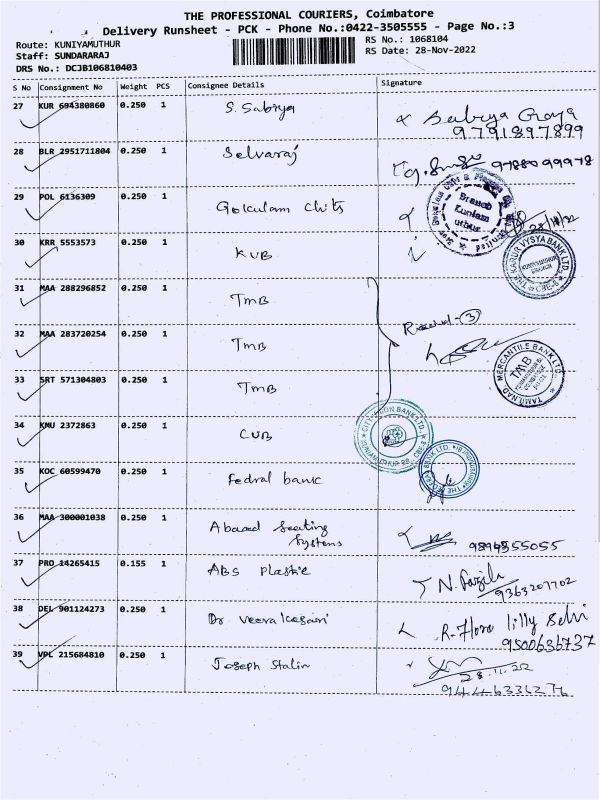 THE PROFESSIONAL COURIERS, Coimbatore
Delivery Runsheet - PCK - Phone No.:0422-3505555 - Page No.:3
Route: KUNIYAMUTHUR
RS No.: 1068104
Staff: SUNDARARAJ
RS Date: 28-Nov-2022
DRS No.: DCJB106810403
S No Consignment No Weight PCS Consignee Details Signature
27 KUR 694380860 0.250 1 S. Sabiya
9791897899
28 BLR 2951711804 0.250 1 Selvaraj
29 POL 6136309 0.250 1 Gokulam Chits
30 KRR 5553573 0.250 1 KVB
THE KARUR VYSYA BANK LTD.
31 MAA 288296852 0.250 1 TMB
32 MAA 283720254 0.250 1 TMB
TAMILNAD MERCANTILE BANK LTD.
TMB
33 SRT 571304803 0.250 1 TMB
34 KMU 2372863 0.250 1 CUB
CITY UNION BANK LTD.
35 KOC 60599470 0.250 1 Fedral bank
36 MAA 300001038 0.250 1 Abaad Seating
Systems
9894355055
37 PRO 14265415 0.155 1 ABS Plastic
N. Fazila
9363207702
38 DEL 901124273 0.250 1 Dr Veera Kesari
R. Flora lilly Selvi
9500636737
39 VPL 215684810 0.250 1 Joseph Stalin
28.11.22
9446336276